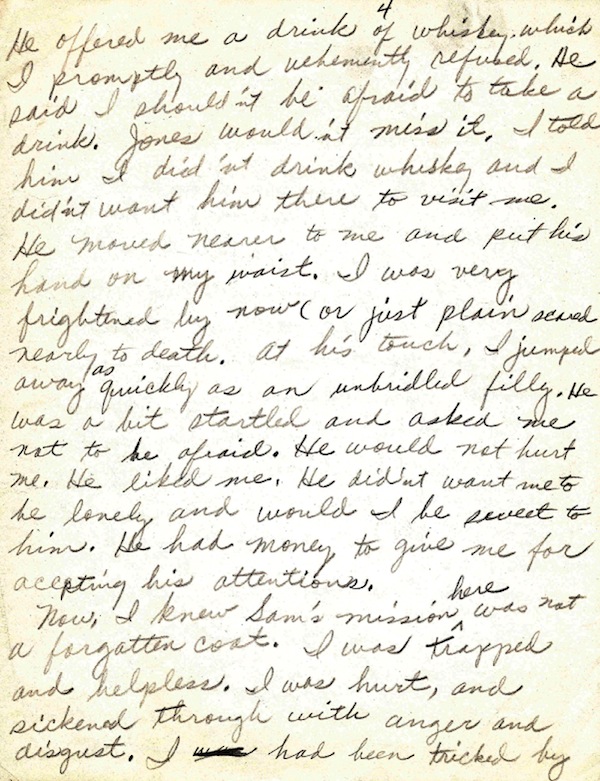 4
He offered me a drink of whiskey. which
I promptly and vehemently refused. He
said I should'nt be afraid to take a
drink. Jones would'nt miss it. I told
him I did'nt drink whiskey and I
did'nt want him there to visit me.
He moved nearer to me and put his
hand on my waist. I was very
frightened by now (or just plain scared
nearly to death. At his touch, I jumped
away as quickly as an unbridled filly. He
was a bit startled and asked me
not to be afraid. He would not hurt
me. He liked me. He did'nt want me to
be lonely and would I be sweet to
him. He had money to give me for
accepting his attentions.
Now, I knew Sam's mission here was not
a forgotten coat. I was trapped
and helpless. I was hurt, and
sickened through with anger and
disgust. I had been tricked by